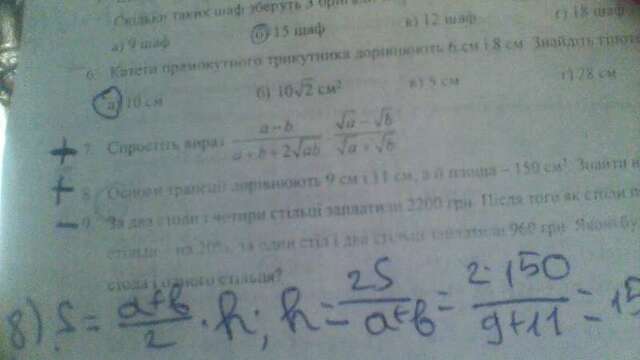 Скільки таких шаф зберуть 3 бригади
а) 9 шаф б) 15 шаф в) 12 шаф г) 18 шаф
6. Катети прямокутного трикутника дорівнюють 6 см і 8 см. Знайдіть
а) 10 см б) 10√2 см² в) 5 см г) 28 см
+ 7. Спростіть вираз (a − b)/(a + b + 2√ab) (√a − √b)/(√a + √b)
+ 8. Основи трапеції дорівнюють 9 см і 11 см, а її площа – 150 см². Знайти
− 9. За два столи і чотири стільці заплатили 2200 грн. Після того як столи
стільці – на 20%, за один стіл і два стільці заплатили 960 грн.
стола і одного стільця?
8) S = (a+b)/2 · h; h = 2S/(a+b) = (2·150)/(9+11) = 15